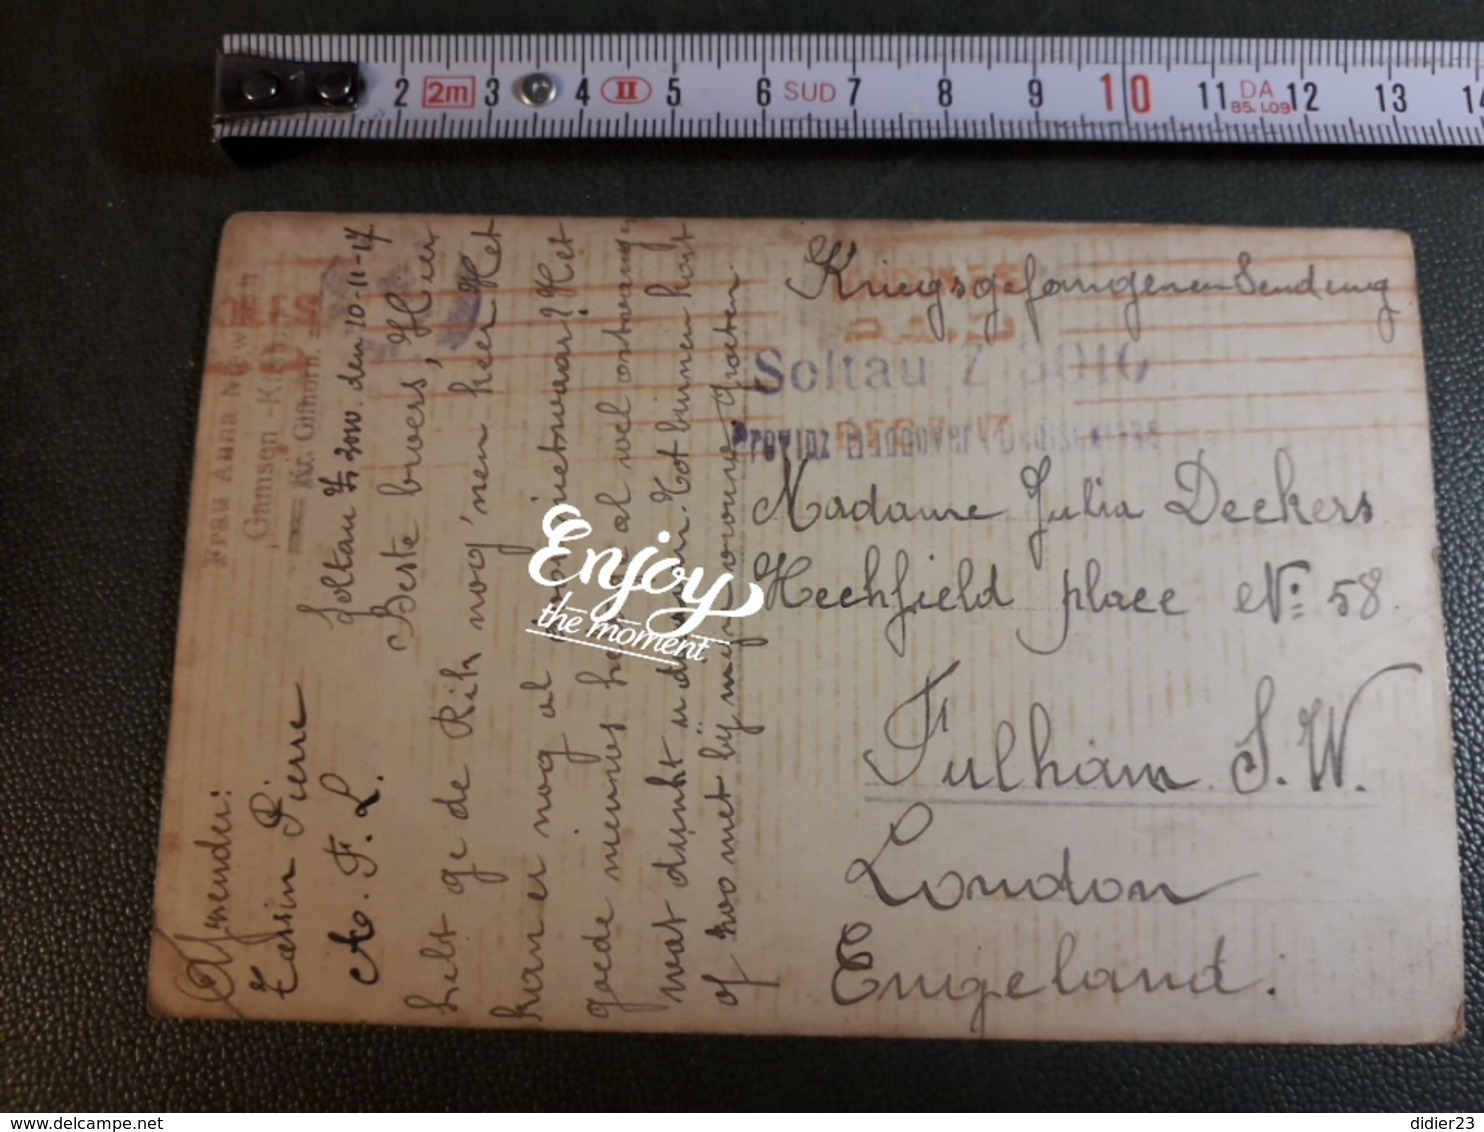 2 2m 3 4 II 5 6 SUD 7 8 9 10 11 DA 12 13 14
85.L09
Kriegsgefangenen Sendung
Soltau Z 3016
Provinz Hannover
Madame Julia Deckers
Hechfield place No: 58
Fulham S.W.
London
Engeland.
Frau Anna
Gamsen
Kr. Gifhorn.
Afzender:
Cassin Pierre
A. F. L.
Soltau den 10-11-17
Beste broers, Hier
hebt ge de Rik nog 'nen keer. Het
kan er nog al door nietwaar? Het
goede menus he al wel ontvangen
wat dunkt u Tot binnen kort
of zoo met bij mijn vrouw groeten
Enjoy
the moment
didier23